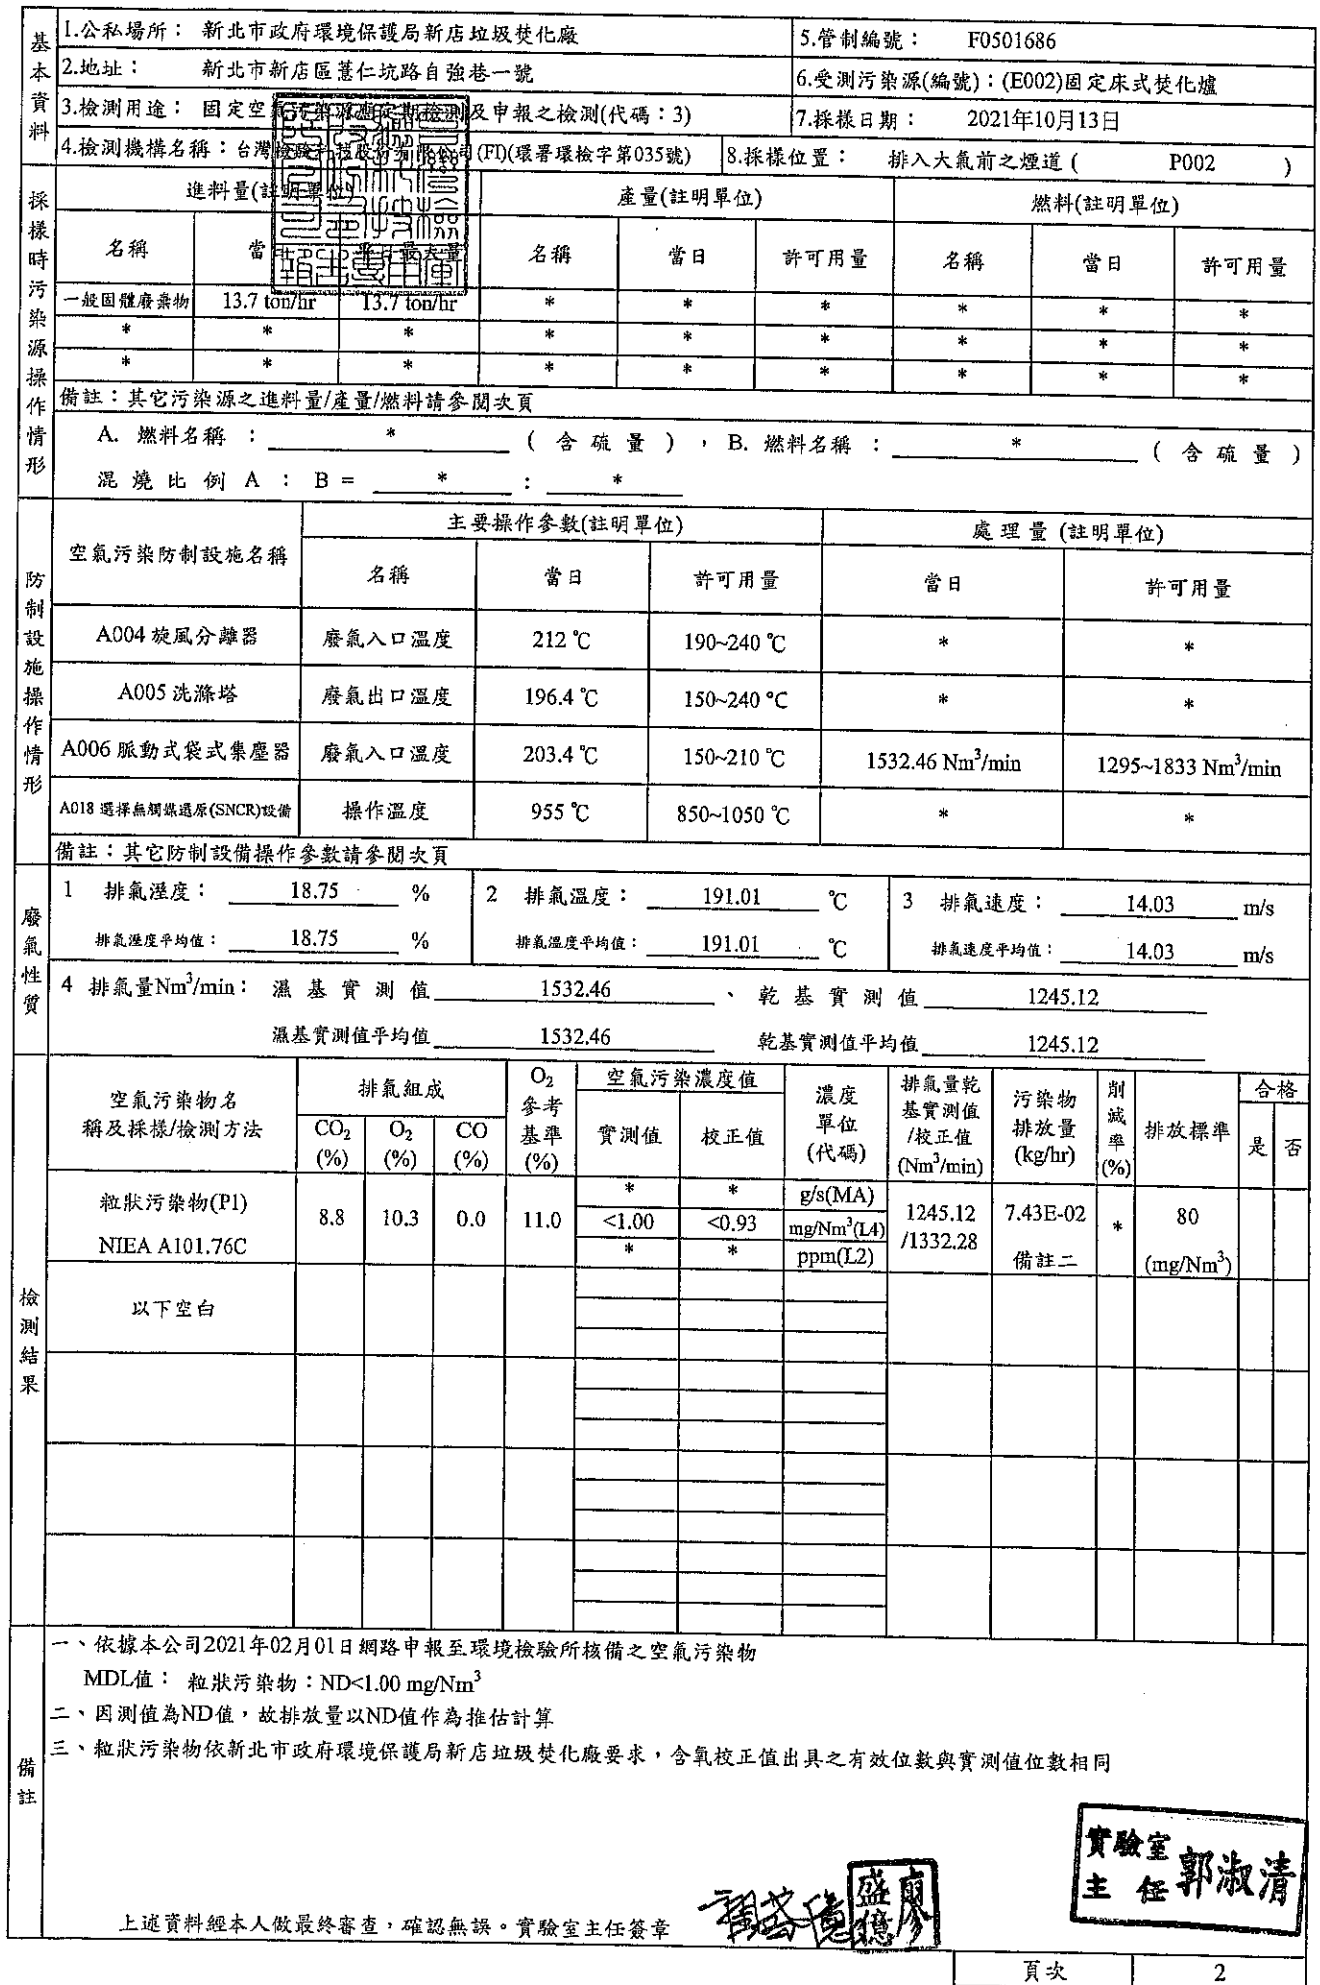 基本資料
1.公私場所： 新北市政府環境保護局新店垃圾焚化廠 5.管制編號： F0501686
2.地址： 新北市新店區薏仁坑路自強巷一號 6.受測污染源(編號)：(E002)固定床式焚化爐
3.檢測用途： 固定空氣污染源應定期檢測及申報之檢測(代碼：3) 7.採樣日期： 2021年10月13日
4.檢測機構名稱：台灣檢驗科技股份有限公司(FI)(環署環檢字第035號) 8.採樣位置： 排入大氣前之煙道( P002 )
採樣時污染源操作情形
進料量(註明單位) 產量(註明單位) 燃料(註明單位)
名稱 當日 平日最大量 名稱 當日 許可用量 名稱 當日 許可用量
一般固體廢棄物 13.7 ton/hr 13.7 ton/hr * * * * * *
* * * * * * * * *
* * * * * * * * *
備註：其它污染源之進料量/產量/燃料請參閱次頁
A. 燃料名稱 ： * ( 含 硫 量 ) ，B. 燃料名稱 ： * ( 含 硫 量 )
混 燒 比 例 A ： B = * ： *
防制設施操作情形
空氣污染防制設施名稱 主要操作參數(註明單位) 處理量 (註明單位)
名稱 當日 許可用量 當日 許可用量
A004 旋風分離器 廢氣入口溫度 212 ℃ 190~240 ℃ * *
A005 洗滌塔 廢氣出口溫度 196.4 ℃ 150~240 ℃ * *
A006 脈動式袋式集塵器 廢氣入口溫度 203.4 ℃ 150~210 ℃ 1532.46 Nm³/min 1295~1833 Nm³/min
A018 選擇無觸媒還原(SNCR)設備 操作溫度 955 ℃ 850~1050 ℃ * *
備註：其它防制設備操作參數請參閱次頁
廢氣性質
1 排氣溼度： 18.75 % 2 排氣溫度： 191.01 ℃ 3 排氣速度： 14.03 m/s
排氣溼度平均值： 18.75 % 排氣溫度平均值： 191.01 ℃ 排氣速度平均值： 14.03 m/s
4 排氣量Nm³/min： 濕 基 實 測 值 1532.46 、 乾 基 實 測 值 1245.12
濕基實測值平均值 1532.46 乾基實測值平均值 1245.12
檢測結果
空氣污染物名稱及採樣/檢測方法 排氣組成 O₂參考基準(%) 空氣污染濃度值 濃度單位(代碼) 排氣量乾基實測值/校正值(Nm³/min) 污染物排放量(kg/hr) 削減率(%) 排放標準 合格
CO₂(%) O₂(%) CO(%) 實測值 校正值 是 否
粒狀污染物(P1) * * g/s(MA)
8.8 10.3 0.0 11.0 <1.00 <0.93 mg/Nm³(L4) 1245.12 /1332.28 7.43E-02 * 80
NIEA A101.76C * * ppm(L2) 備註二 (mg/Nm³)
以下空白
備註
一、依據本公司2021年02月01日網路申報至環境檢驗所核備之空氣污染物
MDL值： 粒狀污染物：ND<1.00 mg/Nm³
二、因測值為ND值，故排放量以ND值作為推估計算
三、粒狀污染物依新北市政府環境保護局新店垃圾焚化廠要求，含氧校正值出具之有效位數與實測值位數相同
實驗室主任 郭淑清
上述資料經本人做最終審查，確認無誤。實驗室主任簽章
頁次 2